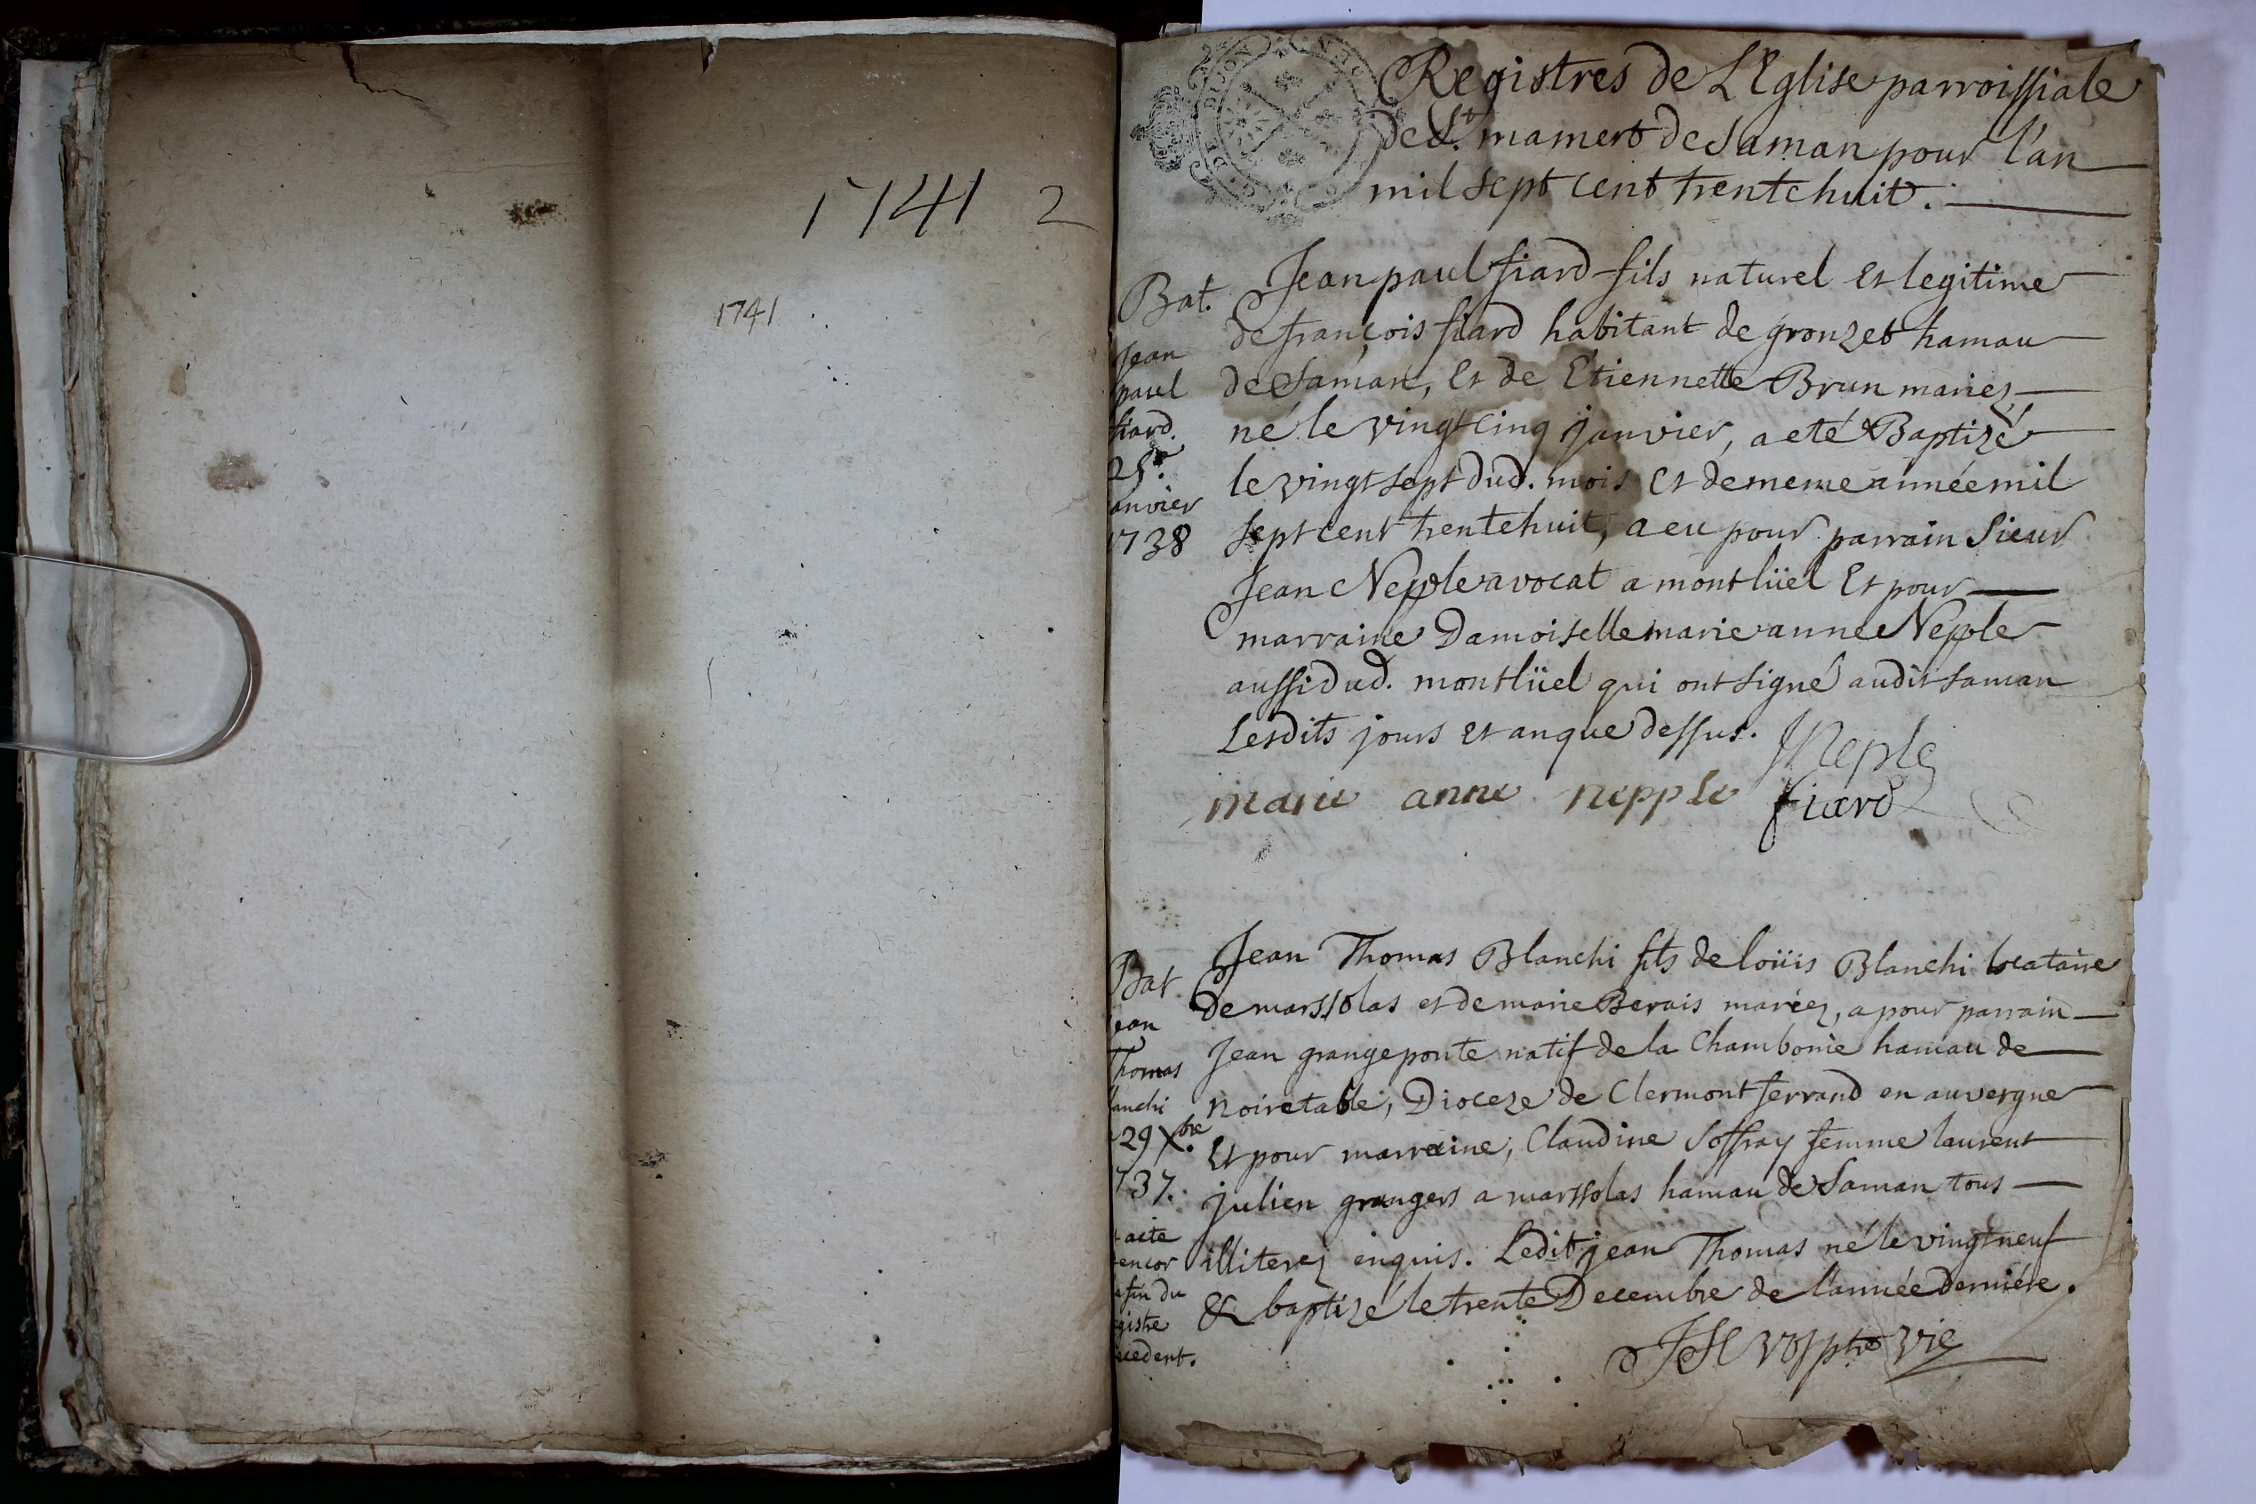 1741 2
1741
Registres de L'Eglise parroissiale
de St. mamert de Saman pour l'an
mil sept cent trente huit.
Bat.
Jean
paul
fiard.
25e.
anvier
1738
Jean paul fiard fils naturel et legitime
de françois fiard habitant de gronzet hamau
de Saman, Et de Etiennette Brun mariez
né le vingt cinq janvier, a eté Baptizé
le vingt sept dud. mois et de meme année mil
sept cent trente huit, a eu pour parrain Sieur
Jean Nepple avocat a montlüel Et pour
marraine Damoiselle marie anne Nepple
aussi dud. montlüel qui ont signé audit saman
Lesdits jours et an que dessus.
JNeple
marie anne nepple fiard
Bat
ean
Thomas
anchi
29 Xbre.
737.
acte
encor
a fin du
gistre
ecedent.
Jean Thomas Blanchi fils de loüis Blanchi locataire
de marssolas et de marie Berais mariez, a pour parrain
Jean grangeponte natif de la Chambonie hamau de
noiretable, Dioceze de Clermont ferrand en auvergne
Et pour marraine, Claudine Soffray femme laurent
julien grangers a marssolas hamau de Saman tous
illiterez enquis. Ledit jean Thomas né le vingt neuf
& baptizé le trente Decembre de l'année derniére.
ptre vic